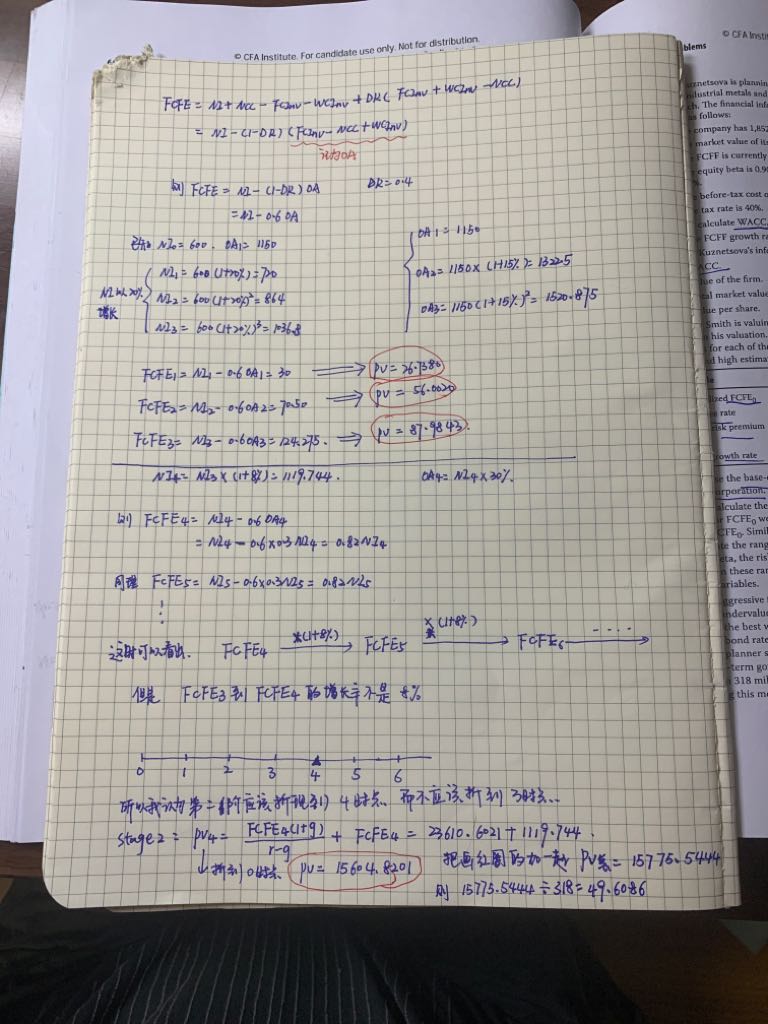 © CFA Institute. For candidate use only. Not for distribution.
FCFE = NI + NCC - FCInv - WCInv + DR( FCInv + WCInv - NCC)
= NI - (1-DR) (FCInv - NCC + WCInv)
记为OA
则 FCFE = NI - (1-DR) OA DR=0.4
= NI - 0.6 OA
已知 NI₀ = 600. OA₁ = 1150
NI以20%增长
NI₁ = 600(1+20%) = 720
NI₂ = 600(1+20%)² = 864
NI₃ = 600(1+20%)³ = 1036.8
OA1 = 1150
OA2 = 1150 × (1+15%) = 1322.5
OA3 = 1150(1+15%)² = 1520.875
FCFE₁ = NI₁ - 0.6OA₁ = 30 ⟹ PV = 26.7380
FCFE₂ = NI₂ - 0.6OA₂ = 70.50 ⟹ PV = 56.0020
FCFE₃ = NI₃ - 0.6OA₃ = 124.275. ⟹ PV = 87.9843.
NI₄ = NI₃ × (1+8%) = 1119.744. OA₄ = NI₄ × 30%.
则 FCFE₄ = NI₄ - 0.6 OA₄
= NI₄ - 0.6×0.3 NI₄ = 0.82NI₄
同理 FCFE₅ = NI₅ - 0.6×0.3NI₅ = 0.82NI₅
⋮
这时可以看出. FCFE₄ ×(1+8%) → FCFE₅ ×(1+8%) → FCFE₆ ···· →
但是 FCFE₃到 FCFE₄ 的增长率不是 8%
0 1 2 3 4 5 6
所以我认为第二阶段应该折现到4时点. 而不应该折到3时点...
stage2 = PV₄ = FCFE₄(1+g) / r-g + FCFE₄ = 23610.6021 + 1119.744.
↓折到0时点 PV = 15604.8201
把画红圈的加一起 PV = 15775.5444
则 15775.5444 ÷ 318 = 49.6086
© CFA Insti
blems
uznetsova is plannin
ndustrial metals and
ch. The financial inf
s follows:
company has 1,852
market value of its
FCFF is currently
equity beta is 0.9
before-tax cost o
tax rate is 40%.
calculate WACC.
FCFF growth ra
Kuznetsova's info
ACC.
lue of the firm.
tal market value
ue per share.
Smith is valuin
his valuation.
for each of the
d high estima
lized FCFE₀
e rate
risk premium
rowth rate
se the base-c
orporation.
lculate the
r FCFE₀ we
CFE₀. Simil
te the rang
eta, the ris
n these ran
ariables.
ggressive
ndervalue
he best w
bond rate
planner s
-term go
318 mil
g this mo